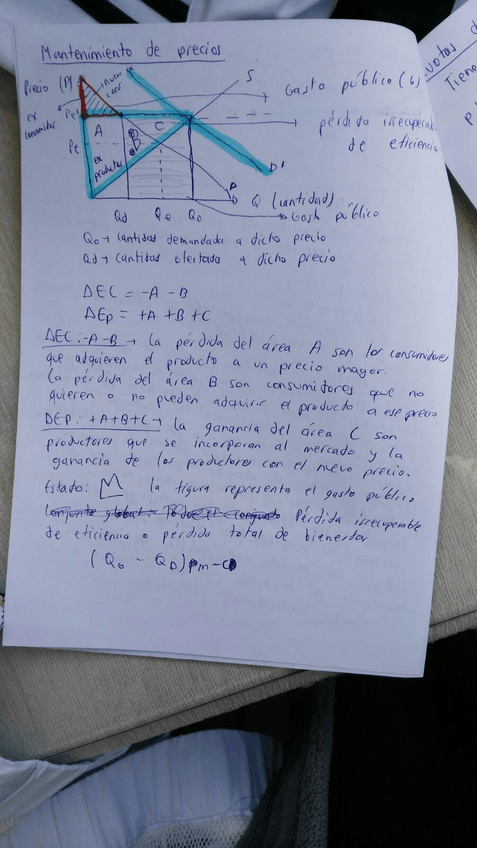 Mantenimiento de precios
Precio (P)
nuevo
ex
consumidor
Pe
A
C
D
ex
productor
S
Gasto público (G)
pérdida irrecuperable
de eficiencia
D'
D
Q (cantidad)
Gasto público
Qd Qe Qo
Qo → cantidad demandada a dicho precio
Qd → cantidad ofertada a dicho precio
ΔEC = -A - B
ΔEp = +A + B + C
ΔEC: -A-B → La pérdida del área A son los consumidores
que adquieren el producto a un precio mayor.
La pérdida del área B son consumidores que no
quieren o no pueden adquirir el producto a ese precio
ΔEP: +A+B+C → la ganancia del área C son
productores que se incorporan al mercado y la
ganancia de los productores con el nuevo precio.
Estado: la figura representa el gasto público
Pérdida irrecuperable
de eficiencia o pérdida total de bienestar
(Qo - QD)
uotas d
Tiene
P